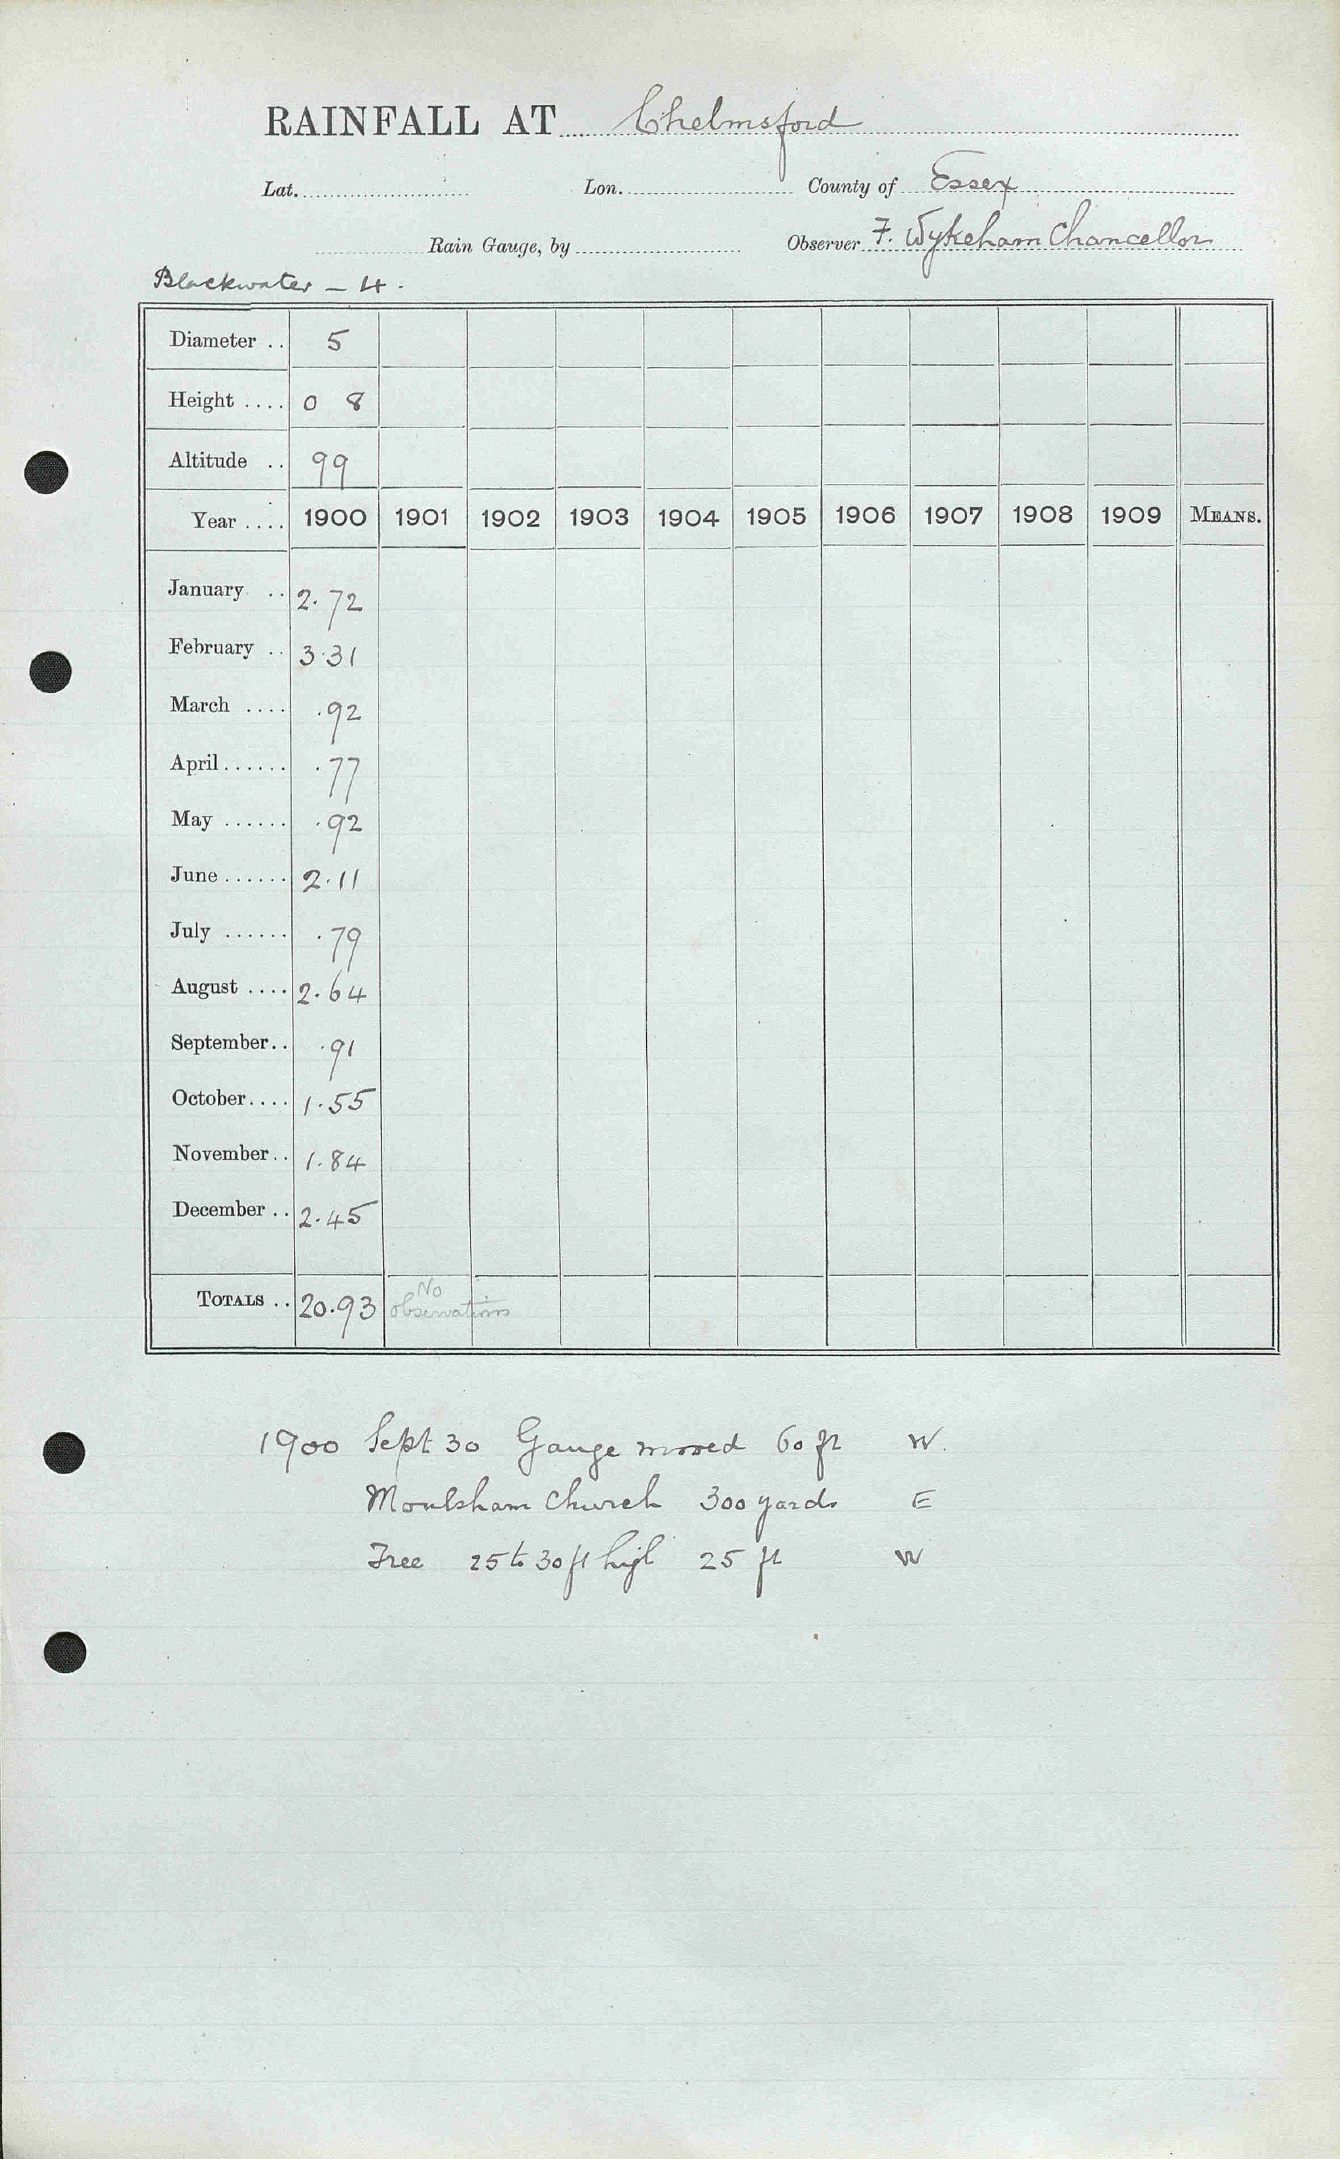 RAINFALL AT Chelmsford
Lat. Lon. County of Essex
Rain Gauge, by Observer F. Wykeham Chancellor
Blackwater - 4.
Diameter .. 5
Height .... 0 8
Altitude .. 99
Year .... 1900 1901 1902 1903 1904 1905 1906 1907 1908 1909 MEANS.
January .. 2.72
February .. 3.31
March .... .92
April...... .77
May ...... .92
June ...... 2.11
July ...... .79
August .... 2.64
September.. .91
October.... 1.55
November.. 1.84
December .. 2.45
TOTALS .. 20.93 No observations
1900 Sept 30 Gauge moved 60 ft W.
Moulsham Church 300 yards E
Tree 25 to 30 ft high 25 ft W